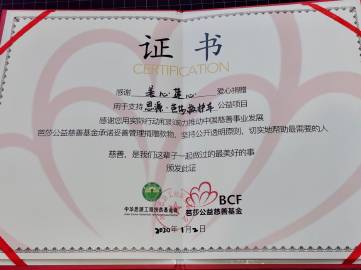 证书
CERTIFICATION
感谢 善心莲心 爱心捐赠
用于支持 思源·芭莎救护车 公益项目
感谢您用实际行动和影响力推动中国慈善事业发展
芭莎公益慈善基金承诺妥善管理捐赠款物，坚持公开透明原则，切实地帮助最需要的人
慈善，是我们这辈子一起做过的最美好的事
颁发此证
中华思源工程扶贫基金会
BCF
芭莎公益慈善基金
2020年1月2日